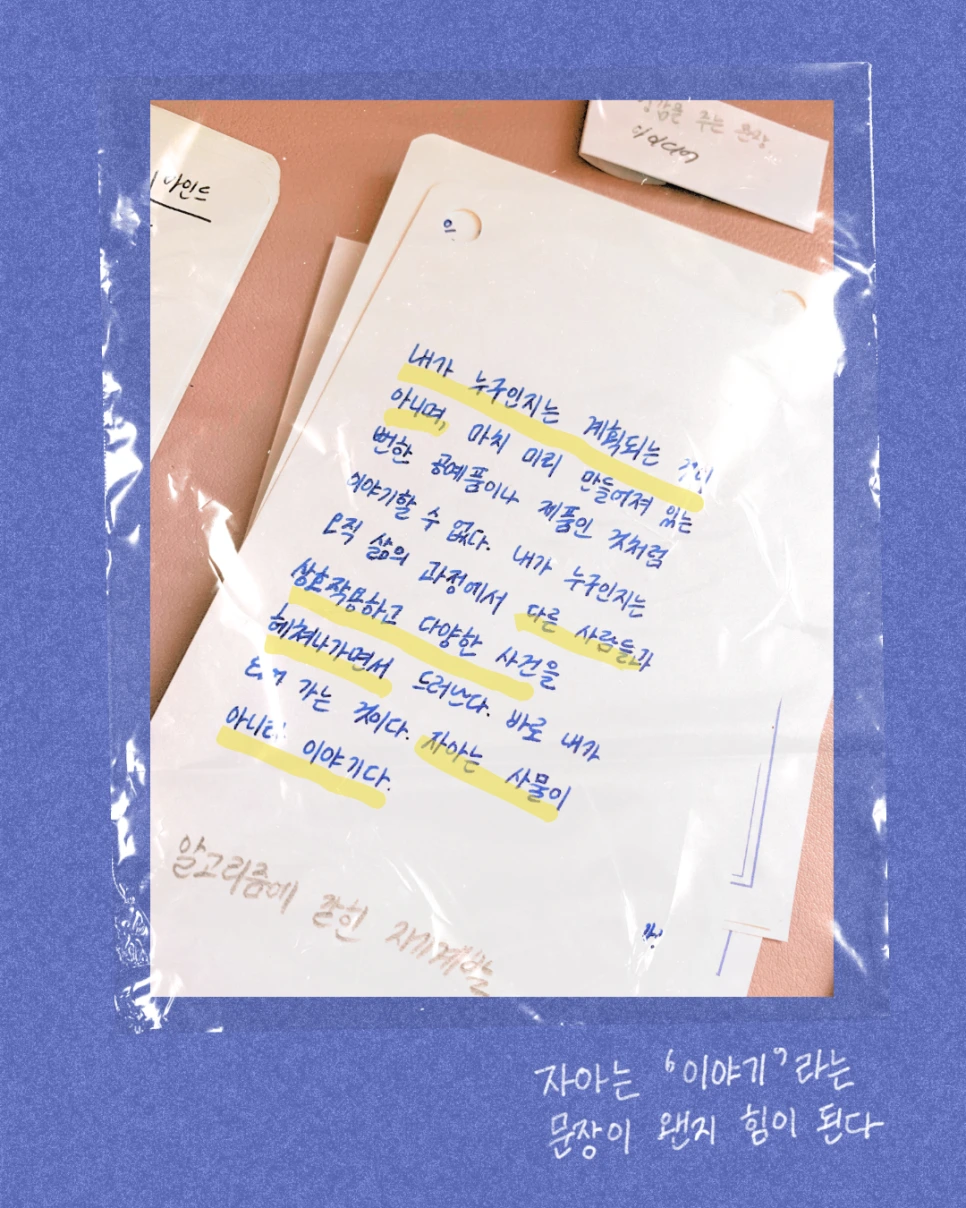 아인드
주는 문장
아이디어
내가 누구인지는 계획되는 것이
아니며, 마치 미리 만들어져 있는
뻔한 공예품이나 제품인 것처럼
이야기할 수 없다. 내가 누구인지는
오직 삶의 과정에서 다른 사람들과
상호작용하고 다양한 사건을
헤쳐나가면서 드러난다. 바로 내가
가는 것이다. 자아는 사물이
아니라 이야기다.
알고리즘에 갇힌 자기계발
자아는 "이야기"라는
문장이 왠지 힘이 된다